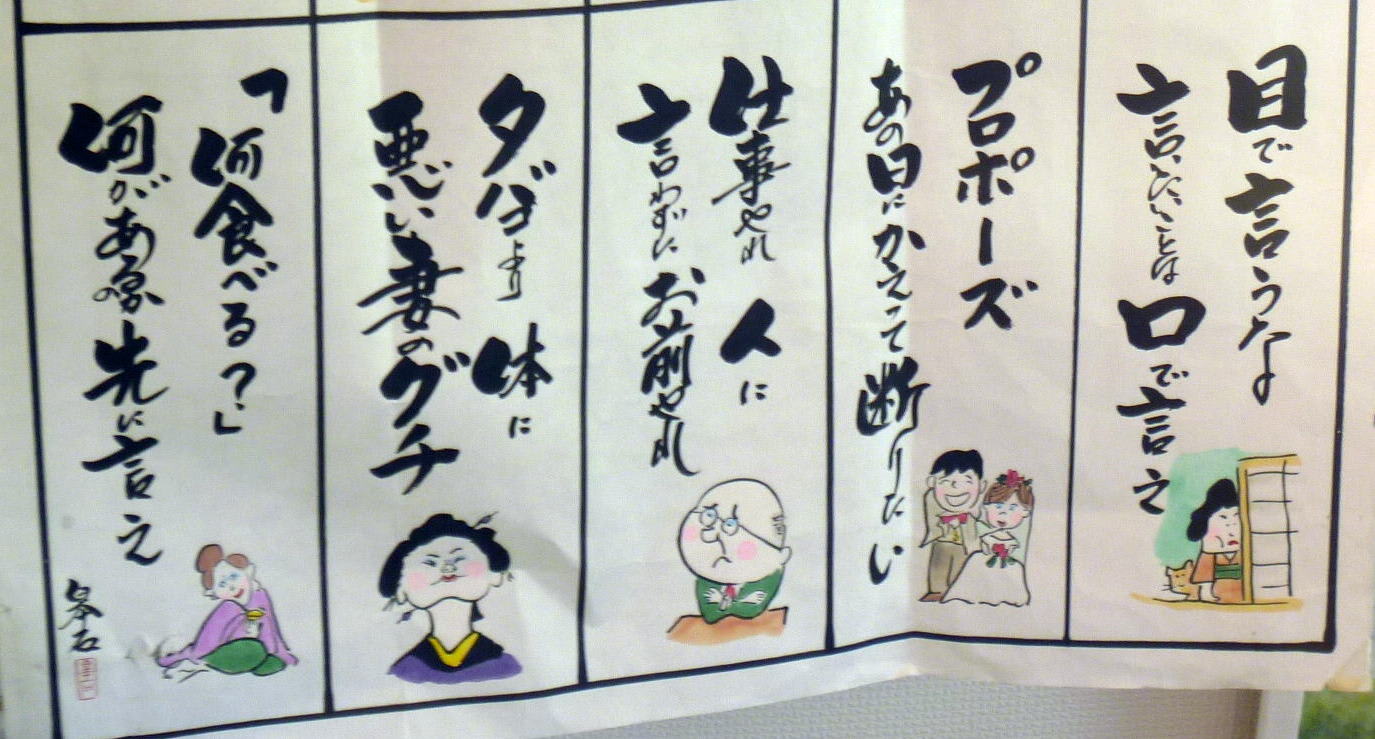 目で言うなよ
言いたいことは口で言え
プロポーズ
あの日にかえって断りたい
仕事やれ 人に
言わずにお前やれ
タバコより 体に
悪い妻のグチ
「何食べる?」
何がある係先に言え